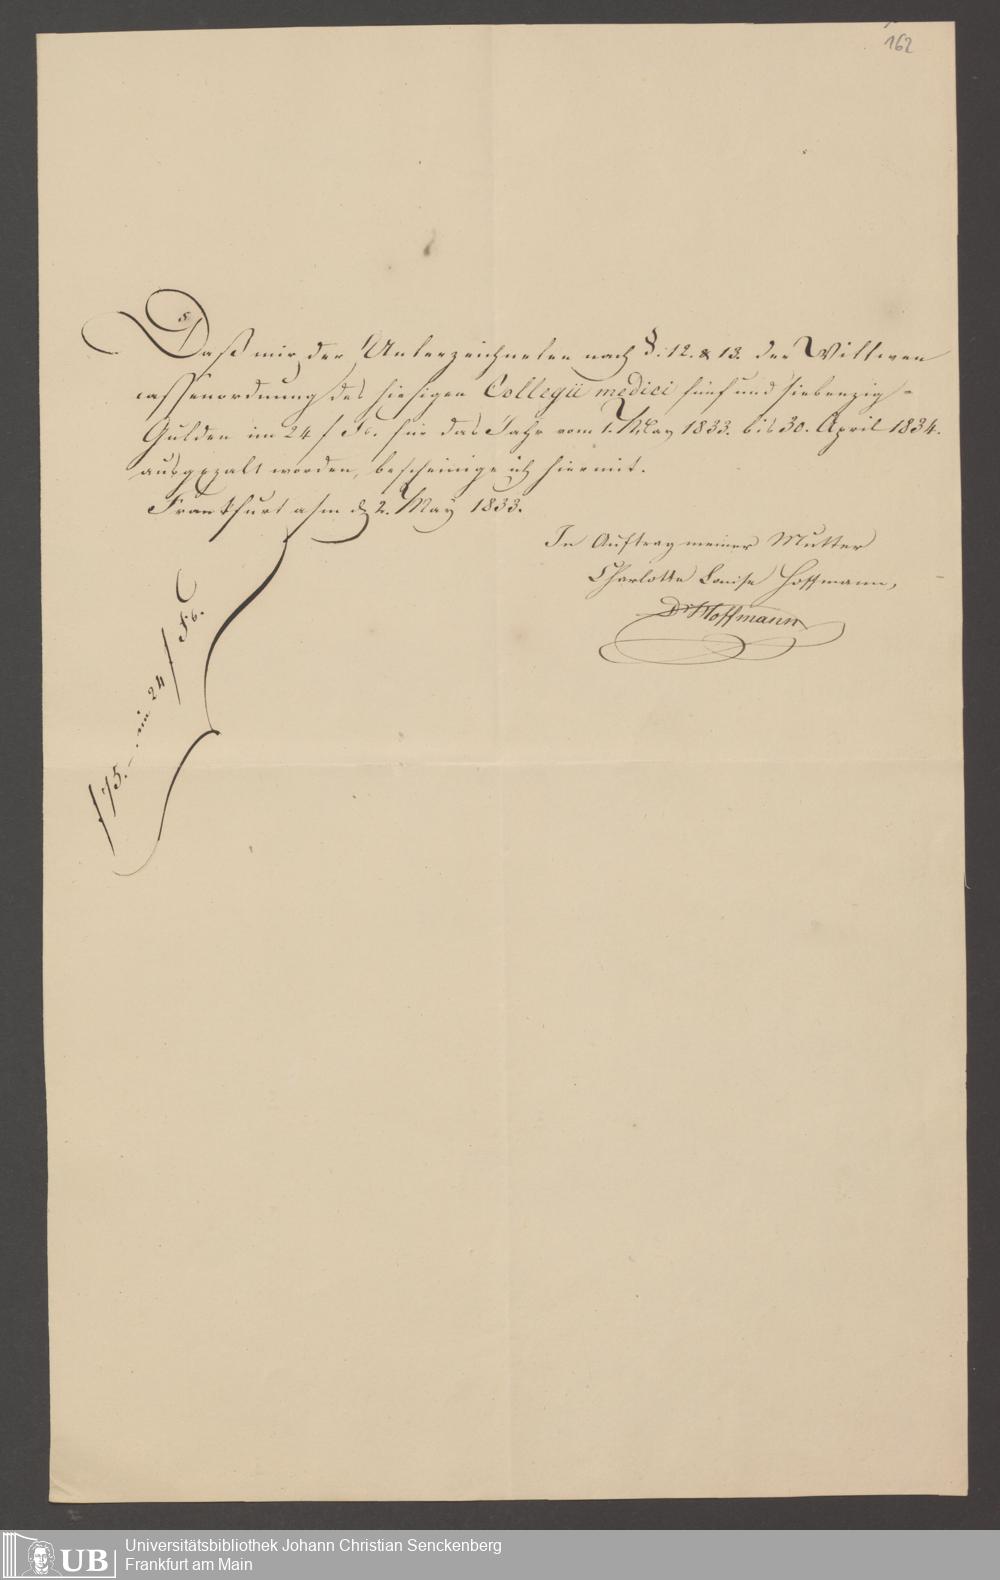 162
Daß mir der Unterzeichneten nach §. 12. & 13. der Wittwen
cassenordnung des hiesigen Collegii medici fünf und siebenzig
Gulden im 24 f Fß. für das Jahr vom 1. May 1833. bis 30. April 1834.
ausgezalt worden, bescheinige ich hiermit.
Frankfurt a/m d. 2. May 1833.
In Auftrag meiner Mutter
Charlotte Louise Hoffmann,
Dr Hoffmann
f 75. – im 24 f Fß.
UB Universitätsbibliothek Johann Christian Senckenberg
Frankfurt am Main